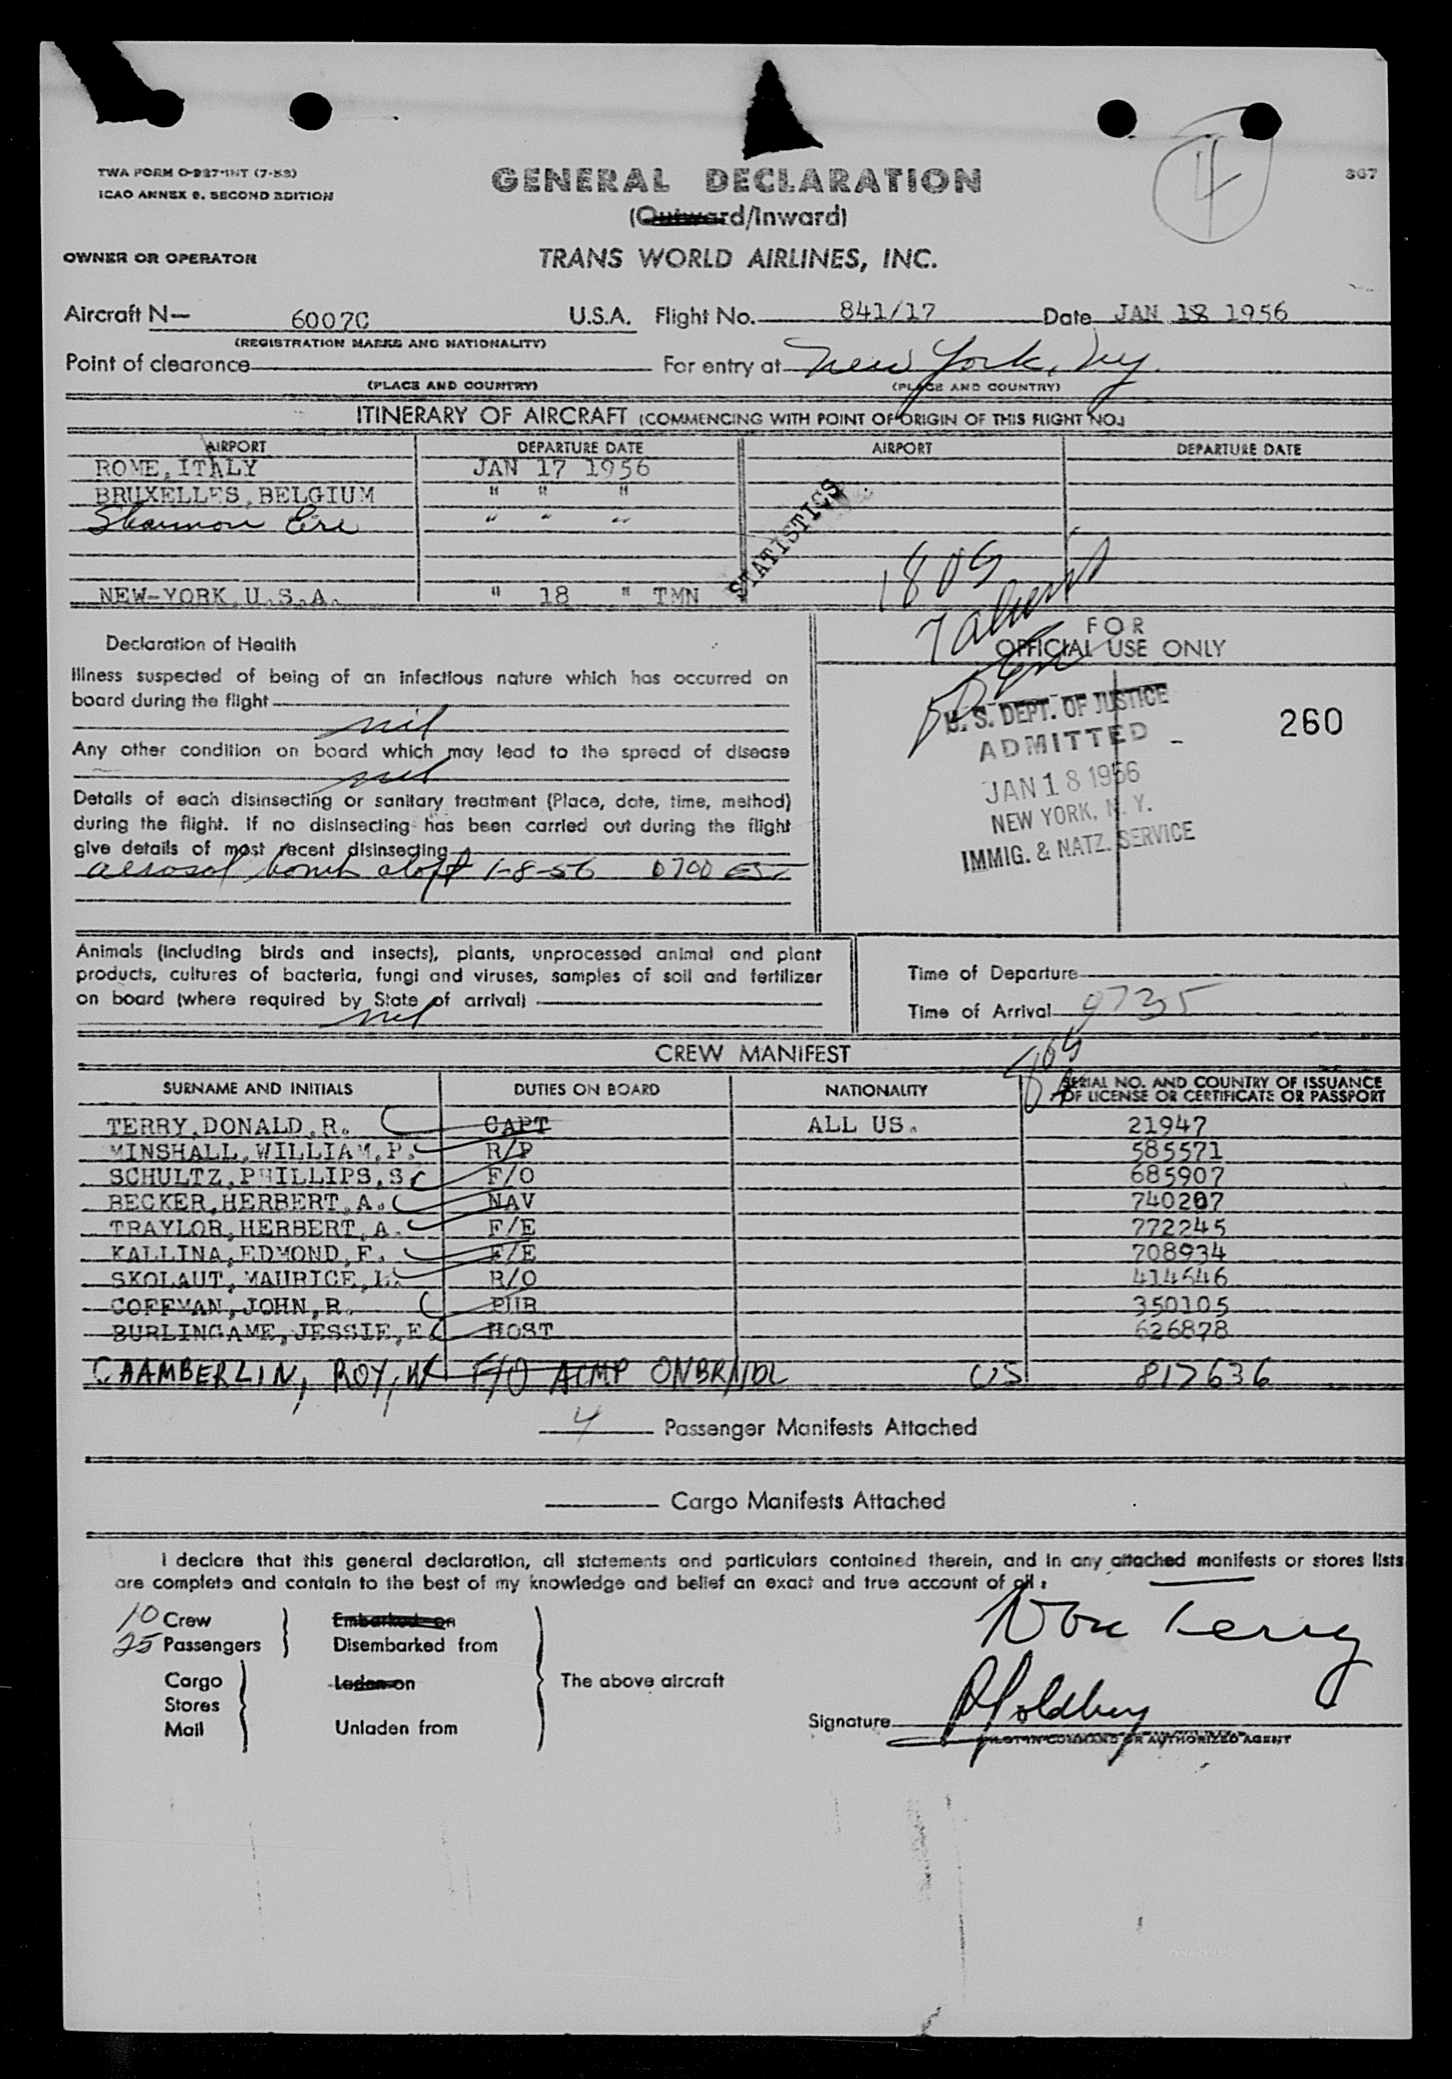 TWA FORM O-927-INT (7-53)
ICAO ANNEX 9, SECOND EDITION
GENERAL DECLARATION
(Outward/Inward)
4
367
OWNER OR OPERATOR
TRANS WORLD AIRLINES, INC.
Aircraft N— 6007C U.S.A. Flight No. 841/17 Date JAN 18 1956
(REGISTRATION MARKS AND NATIONALITY)
Point of clearance For entry at New York, Ny.
(PLACE AND COUNTRY) (PLACE AND COUNTRY)
ITINERARY OF AIRCRAFT (COMMENCING WITH POINT OF ORIGIN OF THIS FLIGHT NO.)
AIRPORT DEPARTURE DATE AIRPORT DEPARTURE DATE
ROME, ITALY JAN 17 1956
BRUXELLES, BELGIUM " " "
Shannon Eire " " "
STATISTICS
NEW-YORK, U.S.A. " 18 " TMN
Declaration of Health
FOR
OFFICIAL USE ONLY
Illness suspected of being of an infectious nature which has occurred on
board during the flight
nil
Any other condition on board which may lead to the spread of disease
nil
U. S. DEPT. OF JUSTICE
ADMITTED
JAN 18 1956
NEW YORK, N. Y.
IMMIG. & NATZ. SERVICE
260
Details of each disinsecting or sanitary treatment (Place, date, time, method)
during the flight. If no disinsecting has been carried out during the flight
give details of most recent disinsecting
aerosol bomb aloft 1-8-56 0700 EST
Animals (including birds and insects), plants, unprocessed animal and plant
products, cultures of bacteria, fungi and viruses, samples of soil and fertilizer
on board (where required by State of arrival)
nil
Time of Departure
Time of Arrival 0735
CREW MANIFEST
SURNAME AND INITIALS DUTIES ON BOARD NATIONALITY SERIAL NO. AND COUNTRY OF ISSUANCE
OF LICENSE OR CERTIFICATE OR PASSPORT
TERRY, DONALD, R. CAPT ALL US. 21947
MINSHALL, WILLIAM, P. R/P 585571
SCHULTZ, PHILLIPS, S. F/O 685907
BECKER, HERBERT, A. NAV 740207
TRAYLOR, HERBERT, A. F/E 772245
KALLINA, EDMOND, F. F/E 708934
SKOLAUT, MAURICE, L. R/O 414646
COFFMAN, JOHN, R. PUR 350105
BURLINGAME, JESSIE, E HOST 626878
CHAMBERLIN, ROY, W F/O ACMP ONBRNDL US 817636
4 Passenger Manifests Attached
Cargo Manifests Attached
I declare that this general declaration, all statements and particulars contained therein, and in any attached manifests or stores lists
are complete and contain to the best of my knowledge and belief an exact and true account of all:
10 Crew Embarked on
25 Passengers Disembarked from
Cargo Laden on The above aircraft
Stores
Mail Unladen from
Don Terry
Signature R Goldberg
PILOT IN COMMAND OR AUTHORIZED AGENT